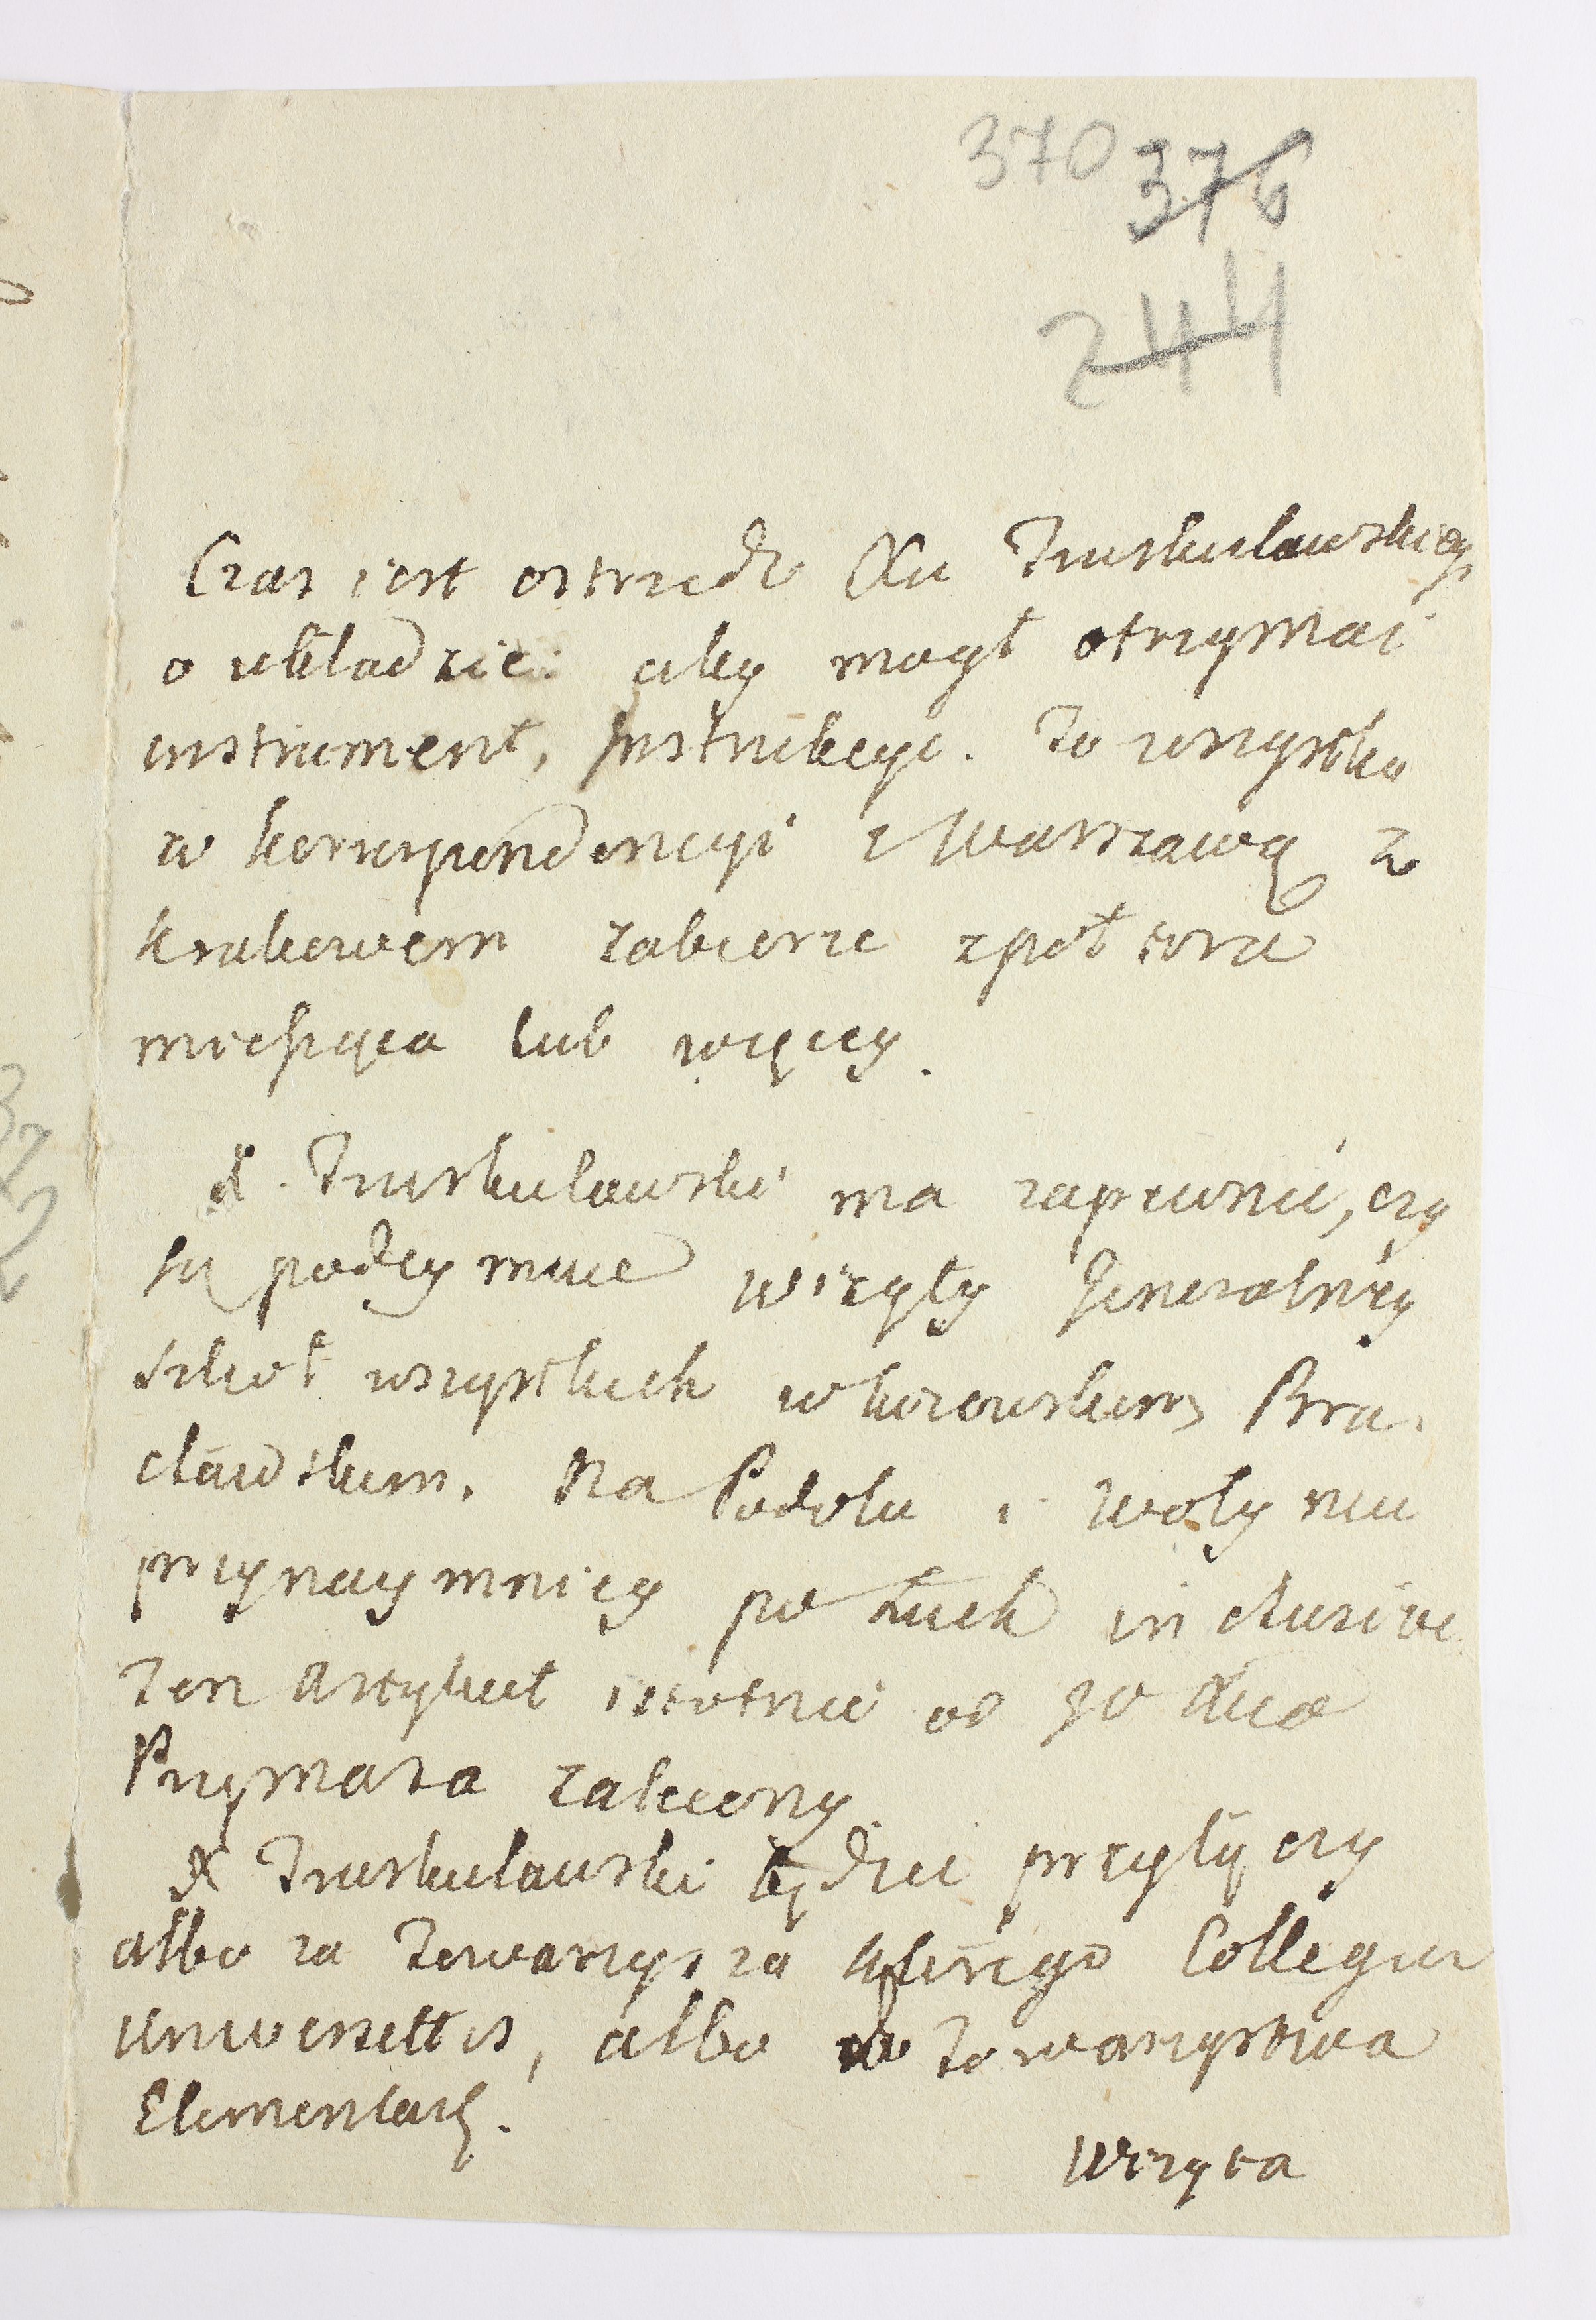 370 376
244
Czas iest ostrzedz Xa Truskulawskieg
o układzie: aby mogł otrzymać
instrument, Instrukcye. To wszystko
w korrespondencyi z Warszawą z
krakowem zabierze z poł tora
miesiąca lub więcey.
X. Truskulawski ma zapewnić, czy
się podeymuie wizyty Generalney
szkoł wszystkich w kiiowskim, Bra.
cławskim. Na Podolu i Wołyniu
przynaymniey po Łuck inclusive
Ten Artykuł istotnie od Jo Xcia
Prymasa zalecony.
X Truskulawski będzie przyięty czy
albo za Towarzysza Collegiu
Universittis, albo do Towarzystwa
Elementarg.
Wizyta